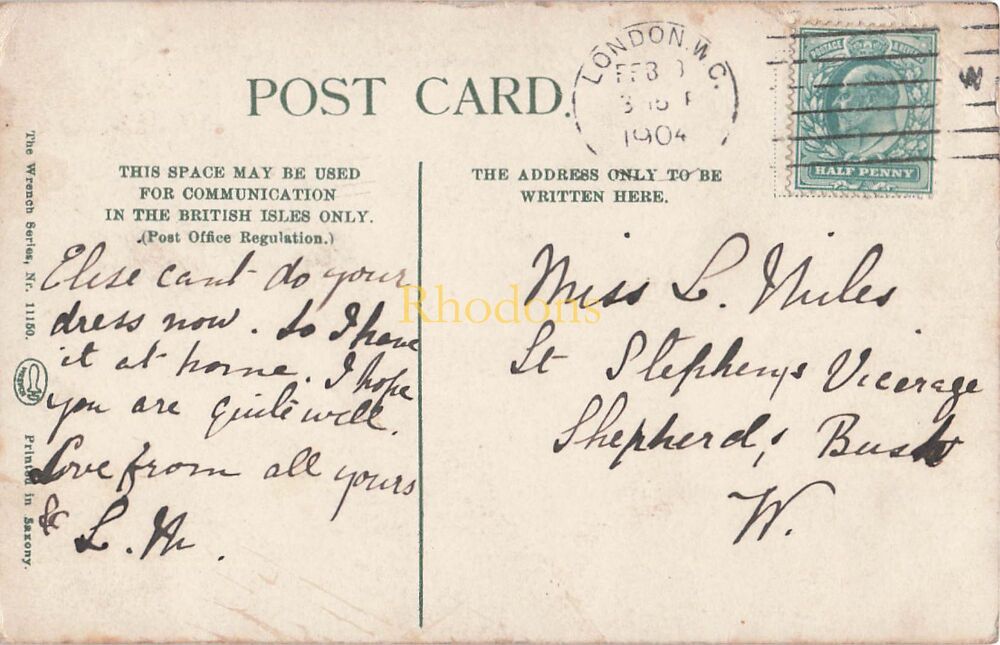 POST CARD.
LONDON. W.C.
FEB
1904
POSTAGE
HALF PENNY
THIS SPACE MAY BE USED
FOR COMMUNICATION
IN THE BRITISH ISLES ONLY.
(Post Office Regulation.)
THE ADDRESS ONLY TO BE
WRITTEN HERE.
Elise cant do your
dress now. So I have
it at home. I hope
you are quite well.
Love from all yours
&
L. M.
Miss L. Niles
St Stephens Vicerage
Shepherds Bush
W.
The Wrench Series, Nr. 11150.
Printed in Saxony.
Rhodons